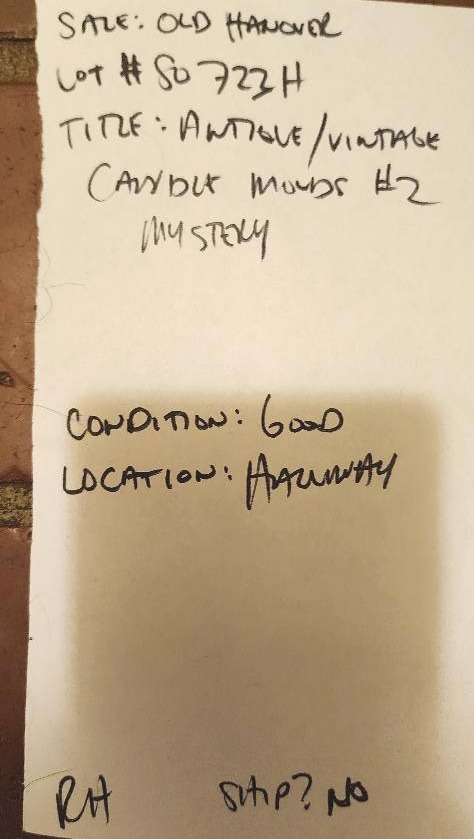 SALE: OLD HANOVER
LOT # 50 723H
TITLE: ANTIQUE/VINTAGE
CANDLE MOLDS #2
MYSTERY
CONDITION: GOOD
LOCATION: HALLWAY
RH SHIP? NO